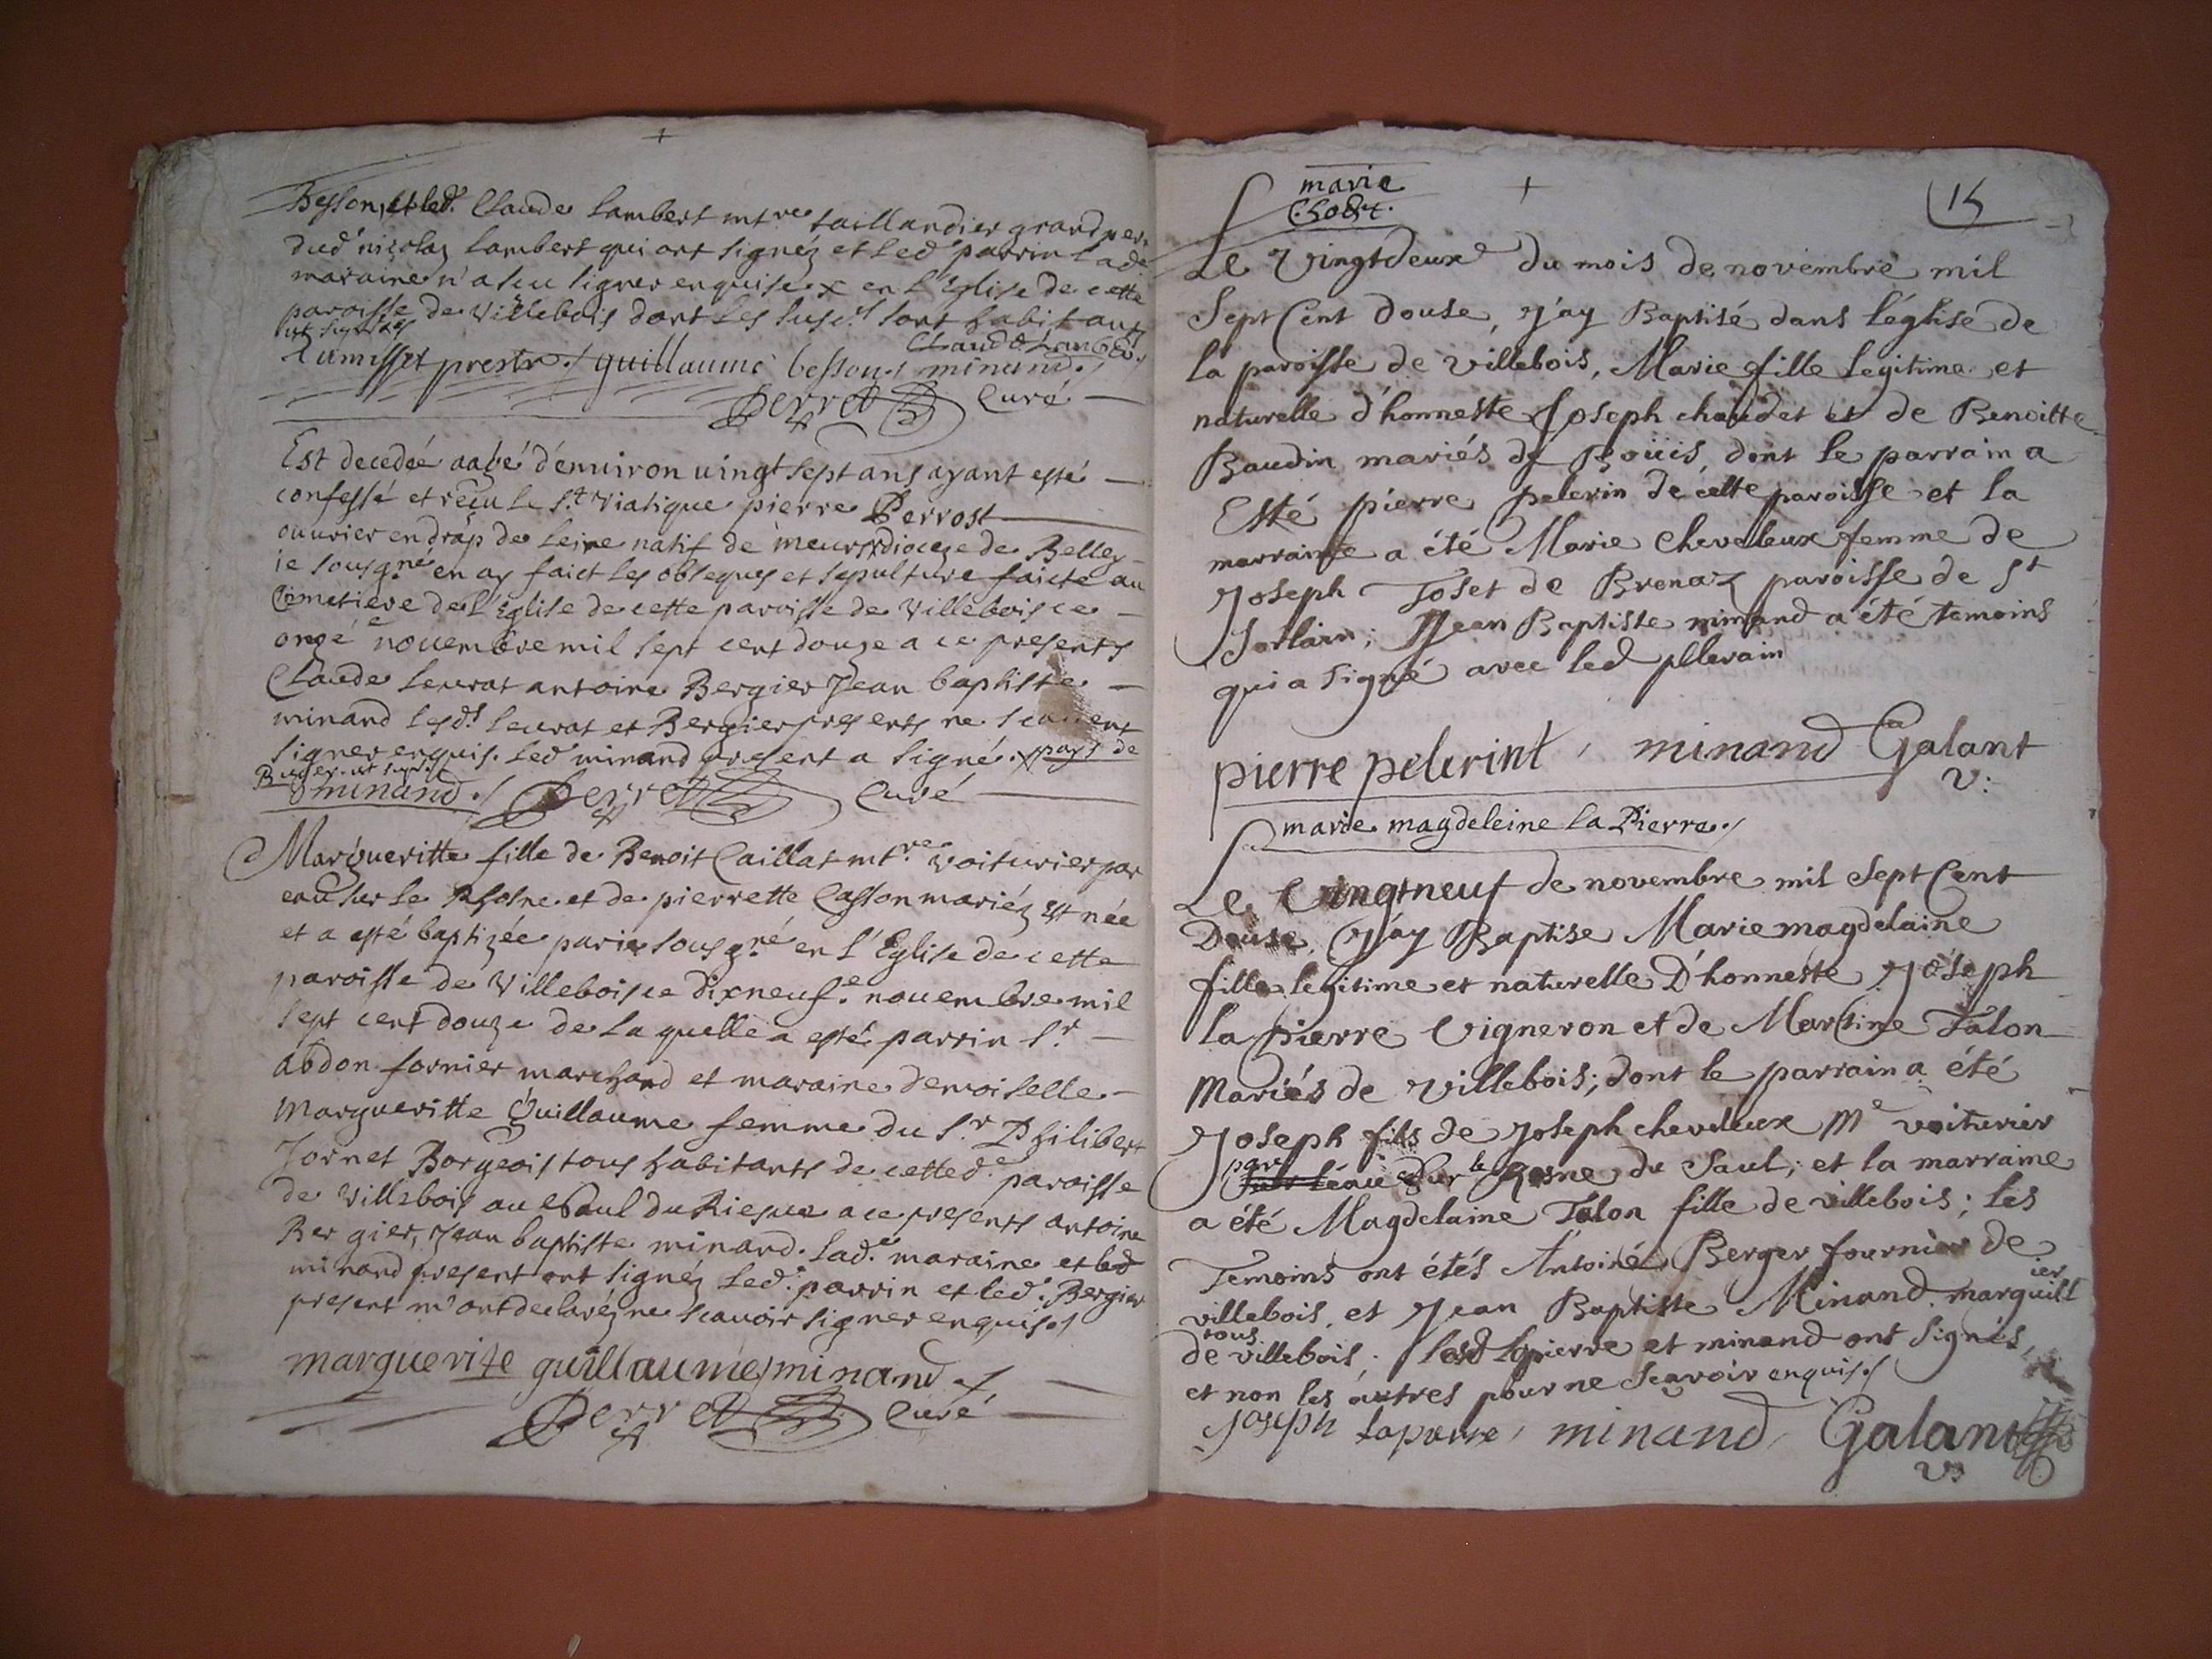 Besson, et led. Claude Lambert mtre taillandier grand pere
dud nicolas Lambert qui ont signéz et led parrin lade
maraine n'a sceu signer enquise x en L'Eglise de cette
paroisse de Villebois dont les susd.s sont habitants
ut supra
Claude Lambert
Lumisset prestre./ guillaume besson./ minand./
Perret Curé
Est decedée aagé d'enuiron uingt sept ans ayant esté
confessé et reçu le S.t Viatique pierre Perrost
ouurier en drap de leine natif de meur x dioceze de Belley
ie sousgné en ay faict les obseques et sepulture faicte au
Cimetiere de l'Eglise de cette paroisse de Villebois ce
onze e nouembre mil sept cent douze a ce presents
Claude Leurat antoine Bergier Jean baptiste
minand lesd.s Leurat et Bergier presents ne scauent
signer enquis. Led minand present a signé. x pays de
Bugey. ut supra
minand./ Perret Curé
Margueritte fille de Benoit Caillat mtre voiturier par
eau sur le Rhosne et de pierrette Casson mariéz est née
et a esté baptizée par ie sousgné en L'Eglise de cette
paroisse de Villebois ce dixneuf.e nouembre mil
sept cent douze de La quelle a esté parrin S.r
abdon fornier marchand et maraine demoiselle
Margueritte Guillaume femme du S.r Philibert
Jornet Borgeois tous habitants de cetted.e paroisse
de Villebois au Saul du Riesme a ce presents antoine
Bergier, Jean baptiste minand. Lad.e maraine et led
minand present ont signéz Led. parrin et led. Bergier
present m'ont declaréz ne scauoir signer enquis./
marguerite guillaume/ minand./
Perret Curé
marie
Chodet.
15
Le Vingtdeux du mois de novembre mil
Sept Cent douse, J'ay Baptisé dans l'église de
la paroisse de villebois, Marie fille legitime et
naturelle d'honneste Joseph chaudet et de Benoitte
Baudin mariés de Boüis, dont le parrain a
Esté pierre pelerin de cette paroisse et la
marraine a été Marie Cheveleux femme de
Joseph Toset de Brenaz paroisse de St
Sorlain; Jean Baptiste minand a été temoins
qui a signé avec led pllerain
pierre pelerint, minand Galant
v:
marie magdeleine la Pierre./
Le Vingtneuf de novembre mil Sept Cent
Douse, J'ay Baptise Marie magdelaine
fille legitime et naturelle D'honneste Joseph
la pierre Vigneron et de Martine Talon
Mariés de villebois; dont le parrain a été
Joseph fils de Joseph cheveleux Me voiturier
par
sur l'eau sur le Rosne du Saul; et la marraine
a été Magdelaine Talon fille de villebois; les
Temoins ont étés Antoine Berger fournier de
villebois, et Jean Baptiste Minand marguillier
tous
de villebois; Lesd Lapierre et minand ont signés,
et non les autres pour ne Sçavoir enquis./
joseph lapierre, minand, Galant
v: